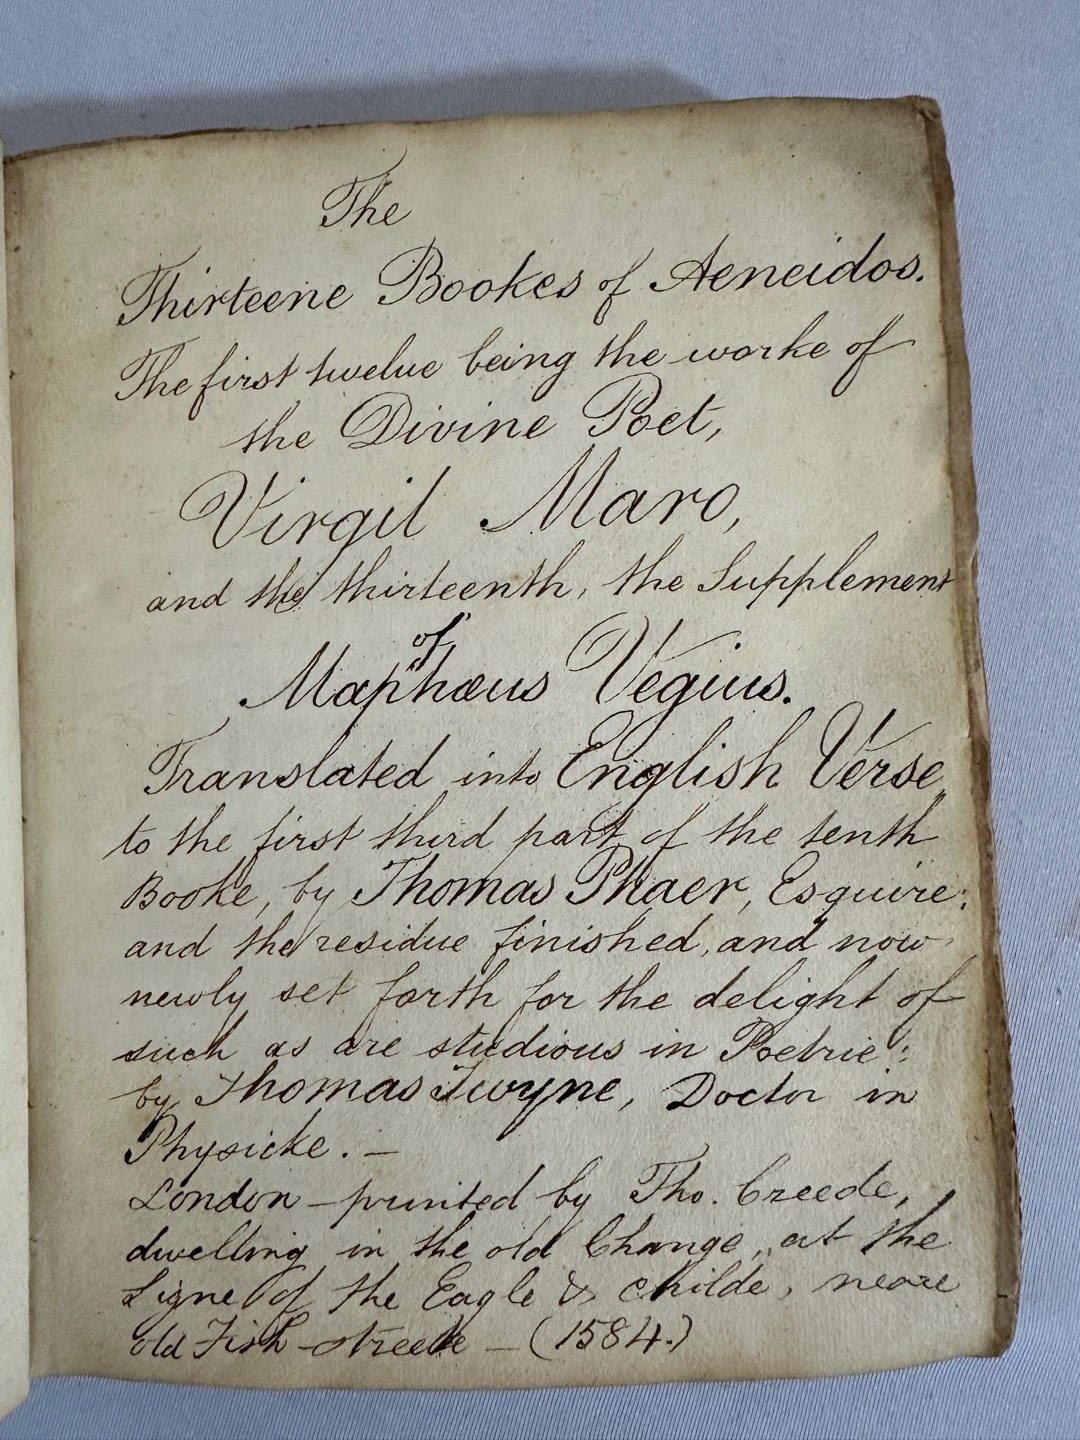 The
Thirteene Bookes of Aeneidos.
The first twelue being the worke of
the Divine Poet,
Virgil Maro,
and the thirteenth, the Supplement
of
Maphæus Vegius.
Translated into English Verse
to the first third part of the tenth
Booke, by Thomas Phaer, Esquire:
and the residue finished, and now
newly set forth for the delight of
such as are studious in Poetrie:
by Thomas Twyne, Doctor in
Physicke. —
London — printed by Tho. Creede,
dwelling in the old Change, at the
Signe of the Eagle & Childe, neare
old Fish-streete — (1584.)